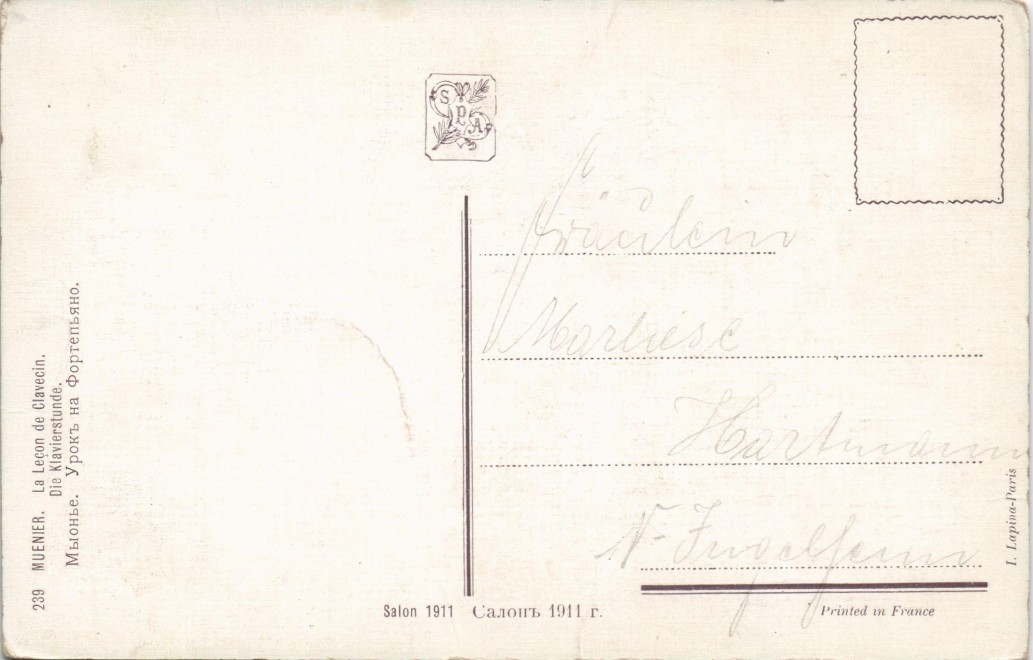 S P A
239 MUENIER. La Leçon de Clavecin.
Die Klavierstunde.
Мыонье. Урокъ на Фортепьяно.
Fräulein
Marliese
Hartmann
N-Ingelheim
I. Lapina-Paris
Salon 1911 Салонъ 1911 г.
Printed in France